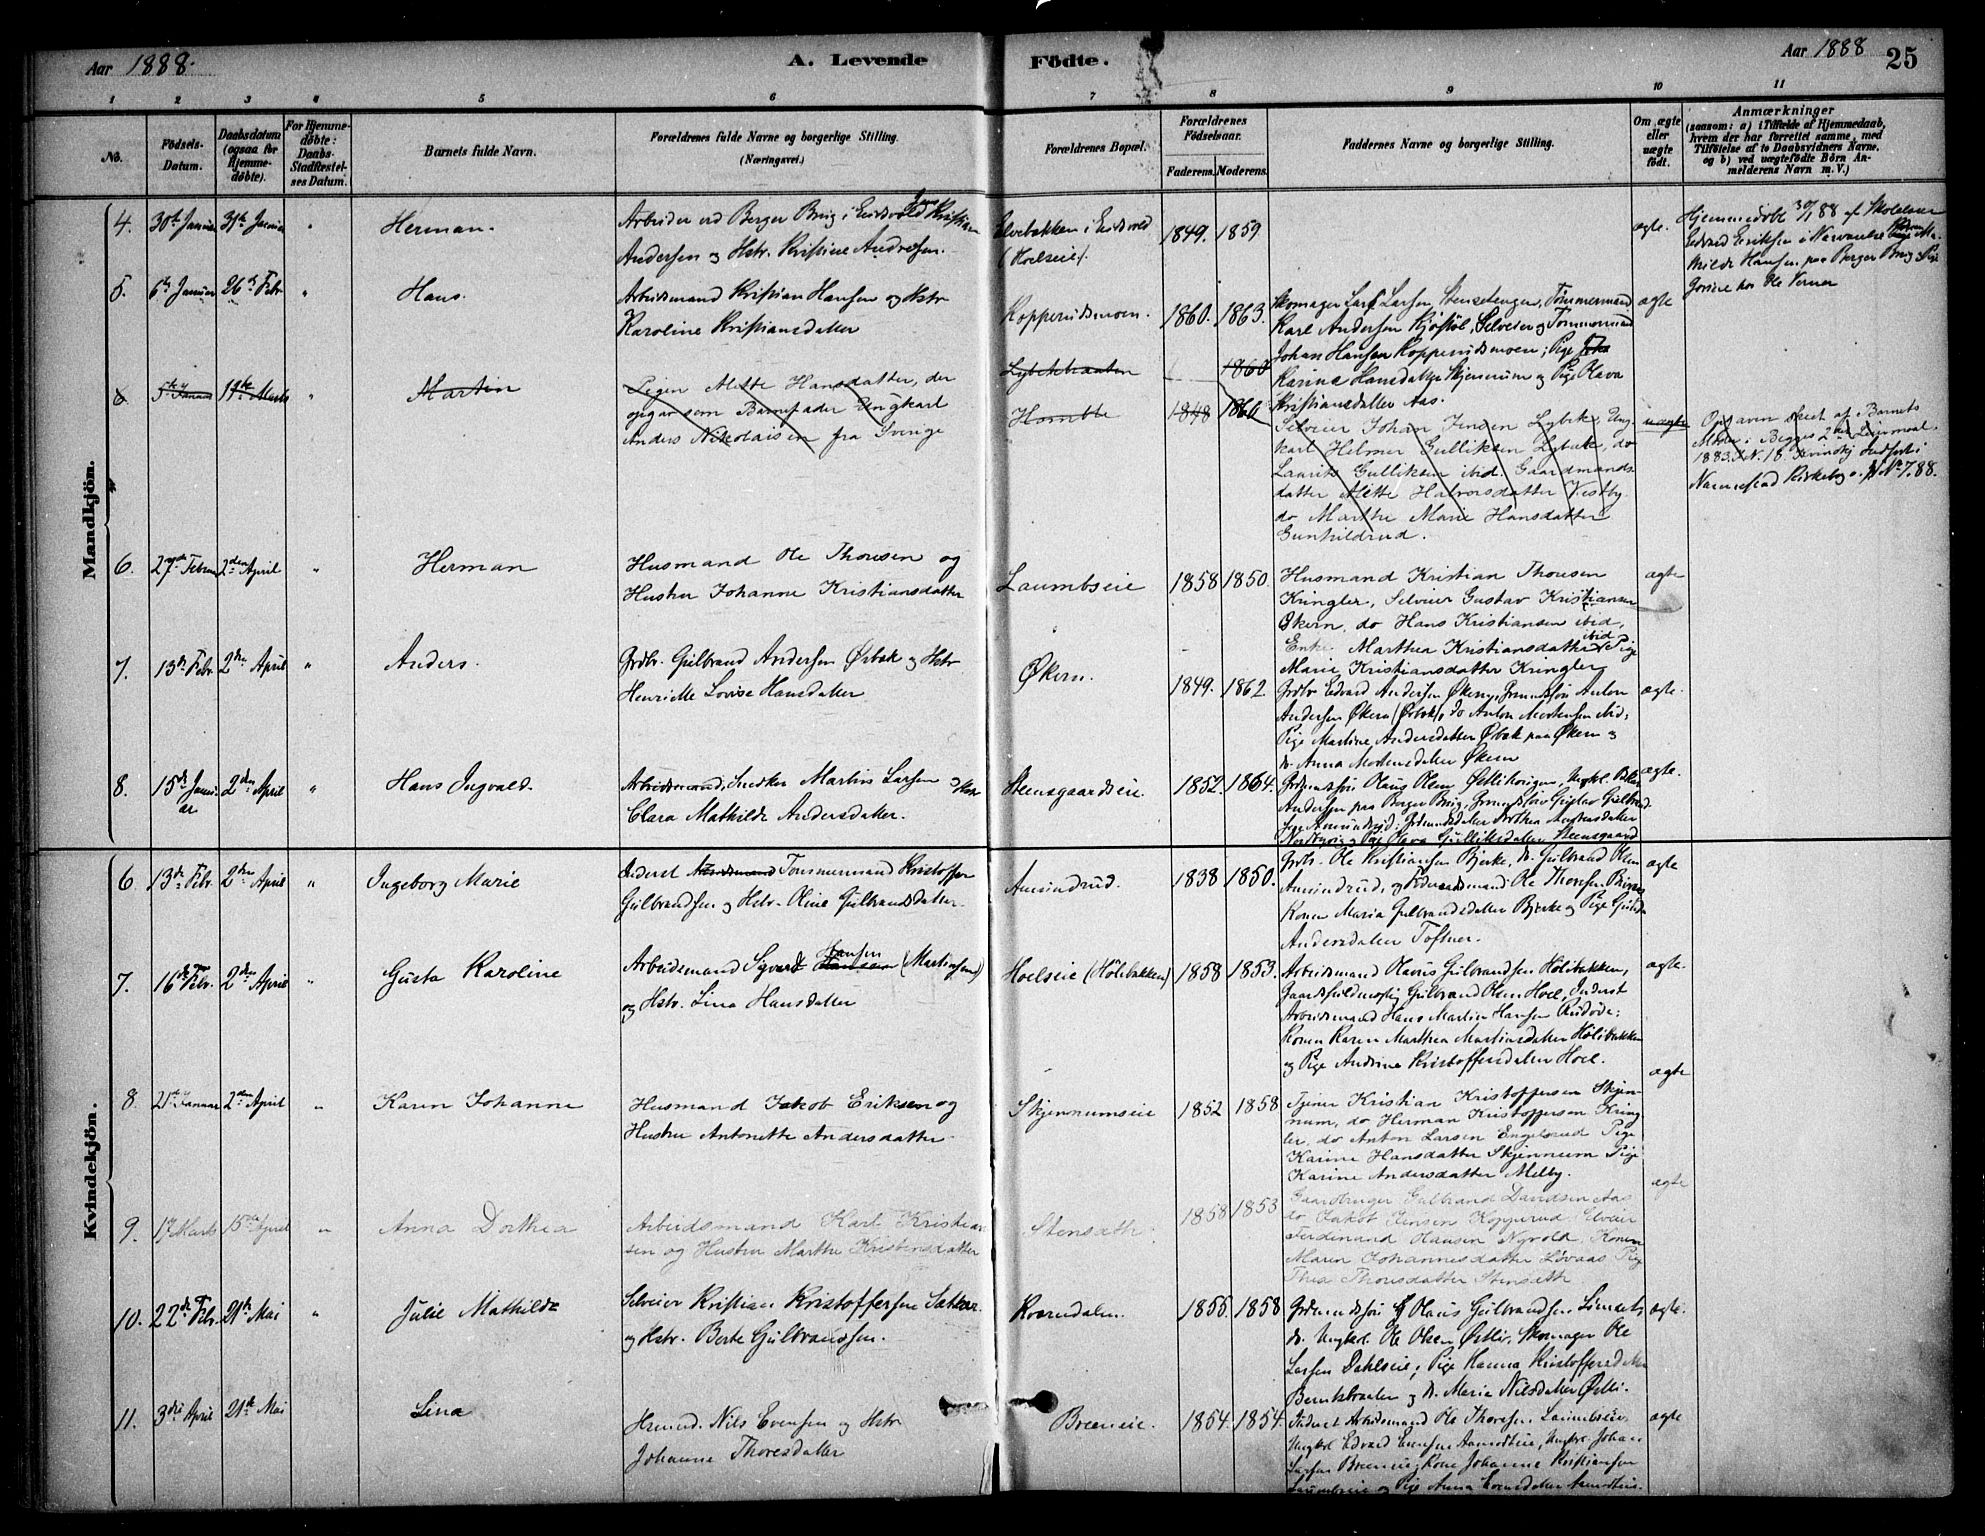 Aar 1888.
A. Levende
Födte.
Aar 1888
25
1 2 3 4 5 6 7 8 9 10 11
No.
Födsels-
Datum.
Daabsdatum
(ogsaa for
Hjemme-
döbte).
For Hjemme-
döbte:
Daabs-
Stadfæstel-
ses Datum.
Barnets fulde Navn.
Forældrenes fulde Navne og borgerlige Stilling.
(Næringsvei.)
Forældrenes Bopæl.
Forældrenes
Födselsaar.
Faderens.
Moderens.
Faddernes Navne og borgerlige Stilling.
Om ægte
eller
uægte
födt.
Anmærkninger
(saasom: a) i Tilfælde af Hjemmedaab,
hvem der har forrettet samme, med
Tilföielse af to Daabsvidners Navne,
og b) ved uægtefödte Börn An-
melderens Navn m. V.)
Mandkjön.
4. 30te Januar 31te Januar " Herman.
Arbeider ved Berger Brug i Eidsvold Kristian
Andersen og Hstr. Kristine Andersen.
Elvebakken i Eidsvold
(Hoelseie).
1849. 1859
ægte.
Hjemmedøbt 30/1 88 af Skolelærer
Edvard Eriksen i
Milde Hansen paa Berger Brug Pige
hos Ole Verner
5. 6te Januar 26de Febr " Hans.
Arbeidsmand Kristian Hansen og Hstr
Karoline Kristiansdatter
Kopperudsmoen. 1860. 1863.
Skomager Lars Larsen Stensetengen, Tømmermand
Karl Andersen Kjøstol, Selveier og Tømmermand
Johan Hansen Kopperudsmoen; Pige
Karine Hansdatter Skjennum og Pige Olava
Kristiansdatter Aas.
ægte
6 5te Januar 11te Marts " Martin
Pigen Alette Hansdatter, der
opgav som Barnefader Ungkarl
Anders Nikolaisen fra Sverige
Lybekbraaten 1860
1848 1860
Selveier Johan Jensen Lybek, Ung-
karl Helmer Gulliksen Lybek, do
Laurits Gulliksen ibid. Gaardmands-
datter Alette Halvorsdatter Vestby
do Marthe Marie Hansdatter
Gunhildrud.
uægte
Opgaven skeet af Barnets
Moder: Begges 2det Leiermaal.
1883. N. 18. Kvindekj Indført i
Nannestad Kirkebog N. 7. 88.
6. 27de Februar 2den April " Herman
Husmand Ole Thoresen og
Hustru Johanne Kristiansdatter
Laumbseie 1858 1850.
Husmand Kristian Thoresen
Kringler, Selveier Gustav Kristiansen
Økern, do Hans Kristiansen ibid,
Enke Marthea Kristiansdatter ibid Pige
Marie Kristiansdatter Kringler
ægte
7. 13de Febr. 2den April " Anders.
Grdbr. Gulbrand Andersen Ørbæk og Hstr
Henriette Lovise Hansdatter
Økern. 1849. 1862.
Grdbr Edvard Andersen Økern, Grmandssøn Anton
Andersen Økern (Ørbæk), do Anton Mortensen ibid;
Pige Martine Andersdatter Ørbæk paa Økern og
do Anna Mortensdatter Økern
ægte.
8. 15de Janu-
ar 2den April " Hans Ingvald.
Arbeidsmand, Snedker Martin Larsen og Hstr
Clara Mathilde Andersdatter.
Steensgaardseie. 1852. 1864.
Grdmandssøn Olaus Olsen
Andersen paa Berger Brug, Grmandssøn Gustav Gulbrand-
sen Amundrud; Grdmandsdatter Dorthea Andersdatter
Nordbyvig og Pige Olava Gulliksdatter Steensgaard
ægte.
Kvindekjön.
6 13de Febr. 2den April " Ingeborg Marie
Inderst Arbeidsmand Tømmermand Kristoffer
Gulbrandsen og Hstr. Oline Gulbrandsdatter.
Amundrud. 1838 1850.
Grdbr. Ole Kristiansen Bjerke, do Gulbrand Olsen
Amundrud, og Føderaadsmand Ole Thoresen
Konen Maria Gulbrandsdatter Bjerke og Pige
Andersdatter Toftner.
ægte
7. 16de Febr. 2den April " Gusta Karoline
Arbeidsmand Sigvard Hansen (Martinsen)
og Hstr. Lina Hansdatter
Hoelseie (Hølibakken) 1858 1853.
Arbeidsmand Olaus Gulbrandsen Hølibakken,
Gaardsfuldmægtig Gulbrand Olsen Hoel, Inderst
Arbeidsmand Hans Martin Hansen
Konen Karen Marthea Martinsdatter Hølibakken
og Pige Andrine Kristoffersdatter Hoel.
ægte.
8. 21de Januar 2den April " Karen Johanne
Husmand Jakob Eriksen og
Hustru Antonette Andersdatter
Skjennumseie 1852 1858
Tjener Kristian Kristoffersen Skjen-
num, do Herman Kristoffersen Kring-
ler, do Anton Larsen Engelsrud Pige
Karine Hansdatter Skjennum Pige
Karine Andersdatter Melby.
ægte
9. 17 Marts 15de April " Anna Dorthea
Arbeidsmand Karl Kristian-
sen og Hustru Marthe Kristensdatter
Stensæth. 1858 1853
Gaardbruger Gulbrand Davidsen Aas
do Jakob Jensen Kopperud, Selveier
Ferdinand Hansen Nyvold, Konen
Maren Johannesdatter Løvaas Pige
Thea Thorsdatter Stenseth.
ægte
10. 22de Febr. 21de Mai " Julie Mathilde
Selveier Kristian Kristoffersen
og Hstr. Berte Gulbrandsen.
Rosendalen. 1855. 1858
Grdmandssøn Olaus Gulbrandsen
do Ungkarl Ole Olsen Østli, Skomager Ole
Larsen Dahlseie; Pige Hanna Kristoffersdatter
Berntsbraaten og do Maria Nilsdatter Østli.
ægte.
11. 3die April 21de Mai Lina
Husmd. Nils Evensen og Hstr
Johanne Thoresdatter
Breeneie. 1854. 1854.
Inderst Arbeidsmand Ole Thoresen Laumbseie,
Ungkrl Edvard Evensen Aamodteie, Ungkrl Johan
Larsen Breeneie, Kone Johanne Kristiansen
Laumbseie og Pige Anna Evensdatter Aamodteie.
ægte